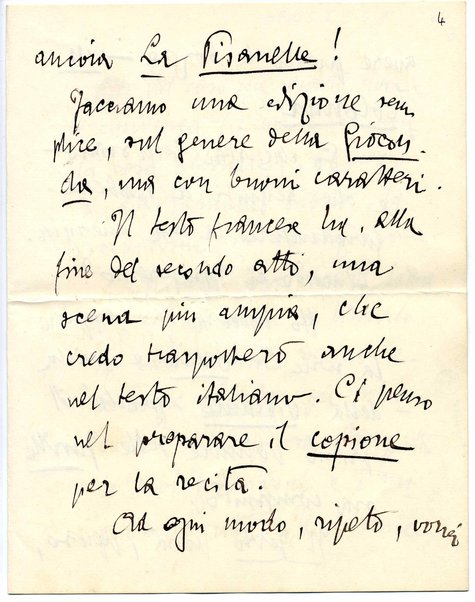 4
ancora La Pisanelle!
Facciamo una edizione sem
plice, sul genere della Giocon-
da, ma con buoni caratteri.
Il testo francese ha, alla
fine del secondo atto, una
scena più ampia, che
credo trasporterò anche
nel testo italiano. Ci penso
nel preparare il copione
per la recita.
Ad ogni modo, ripeto, vorrei